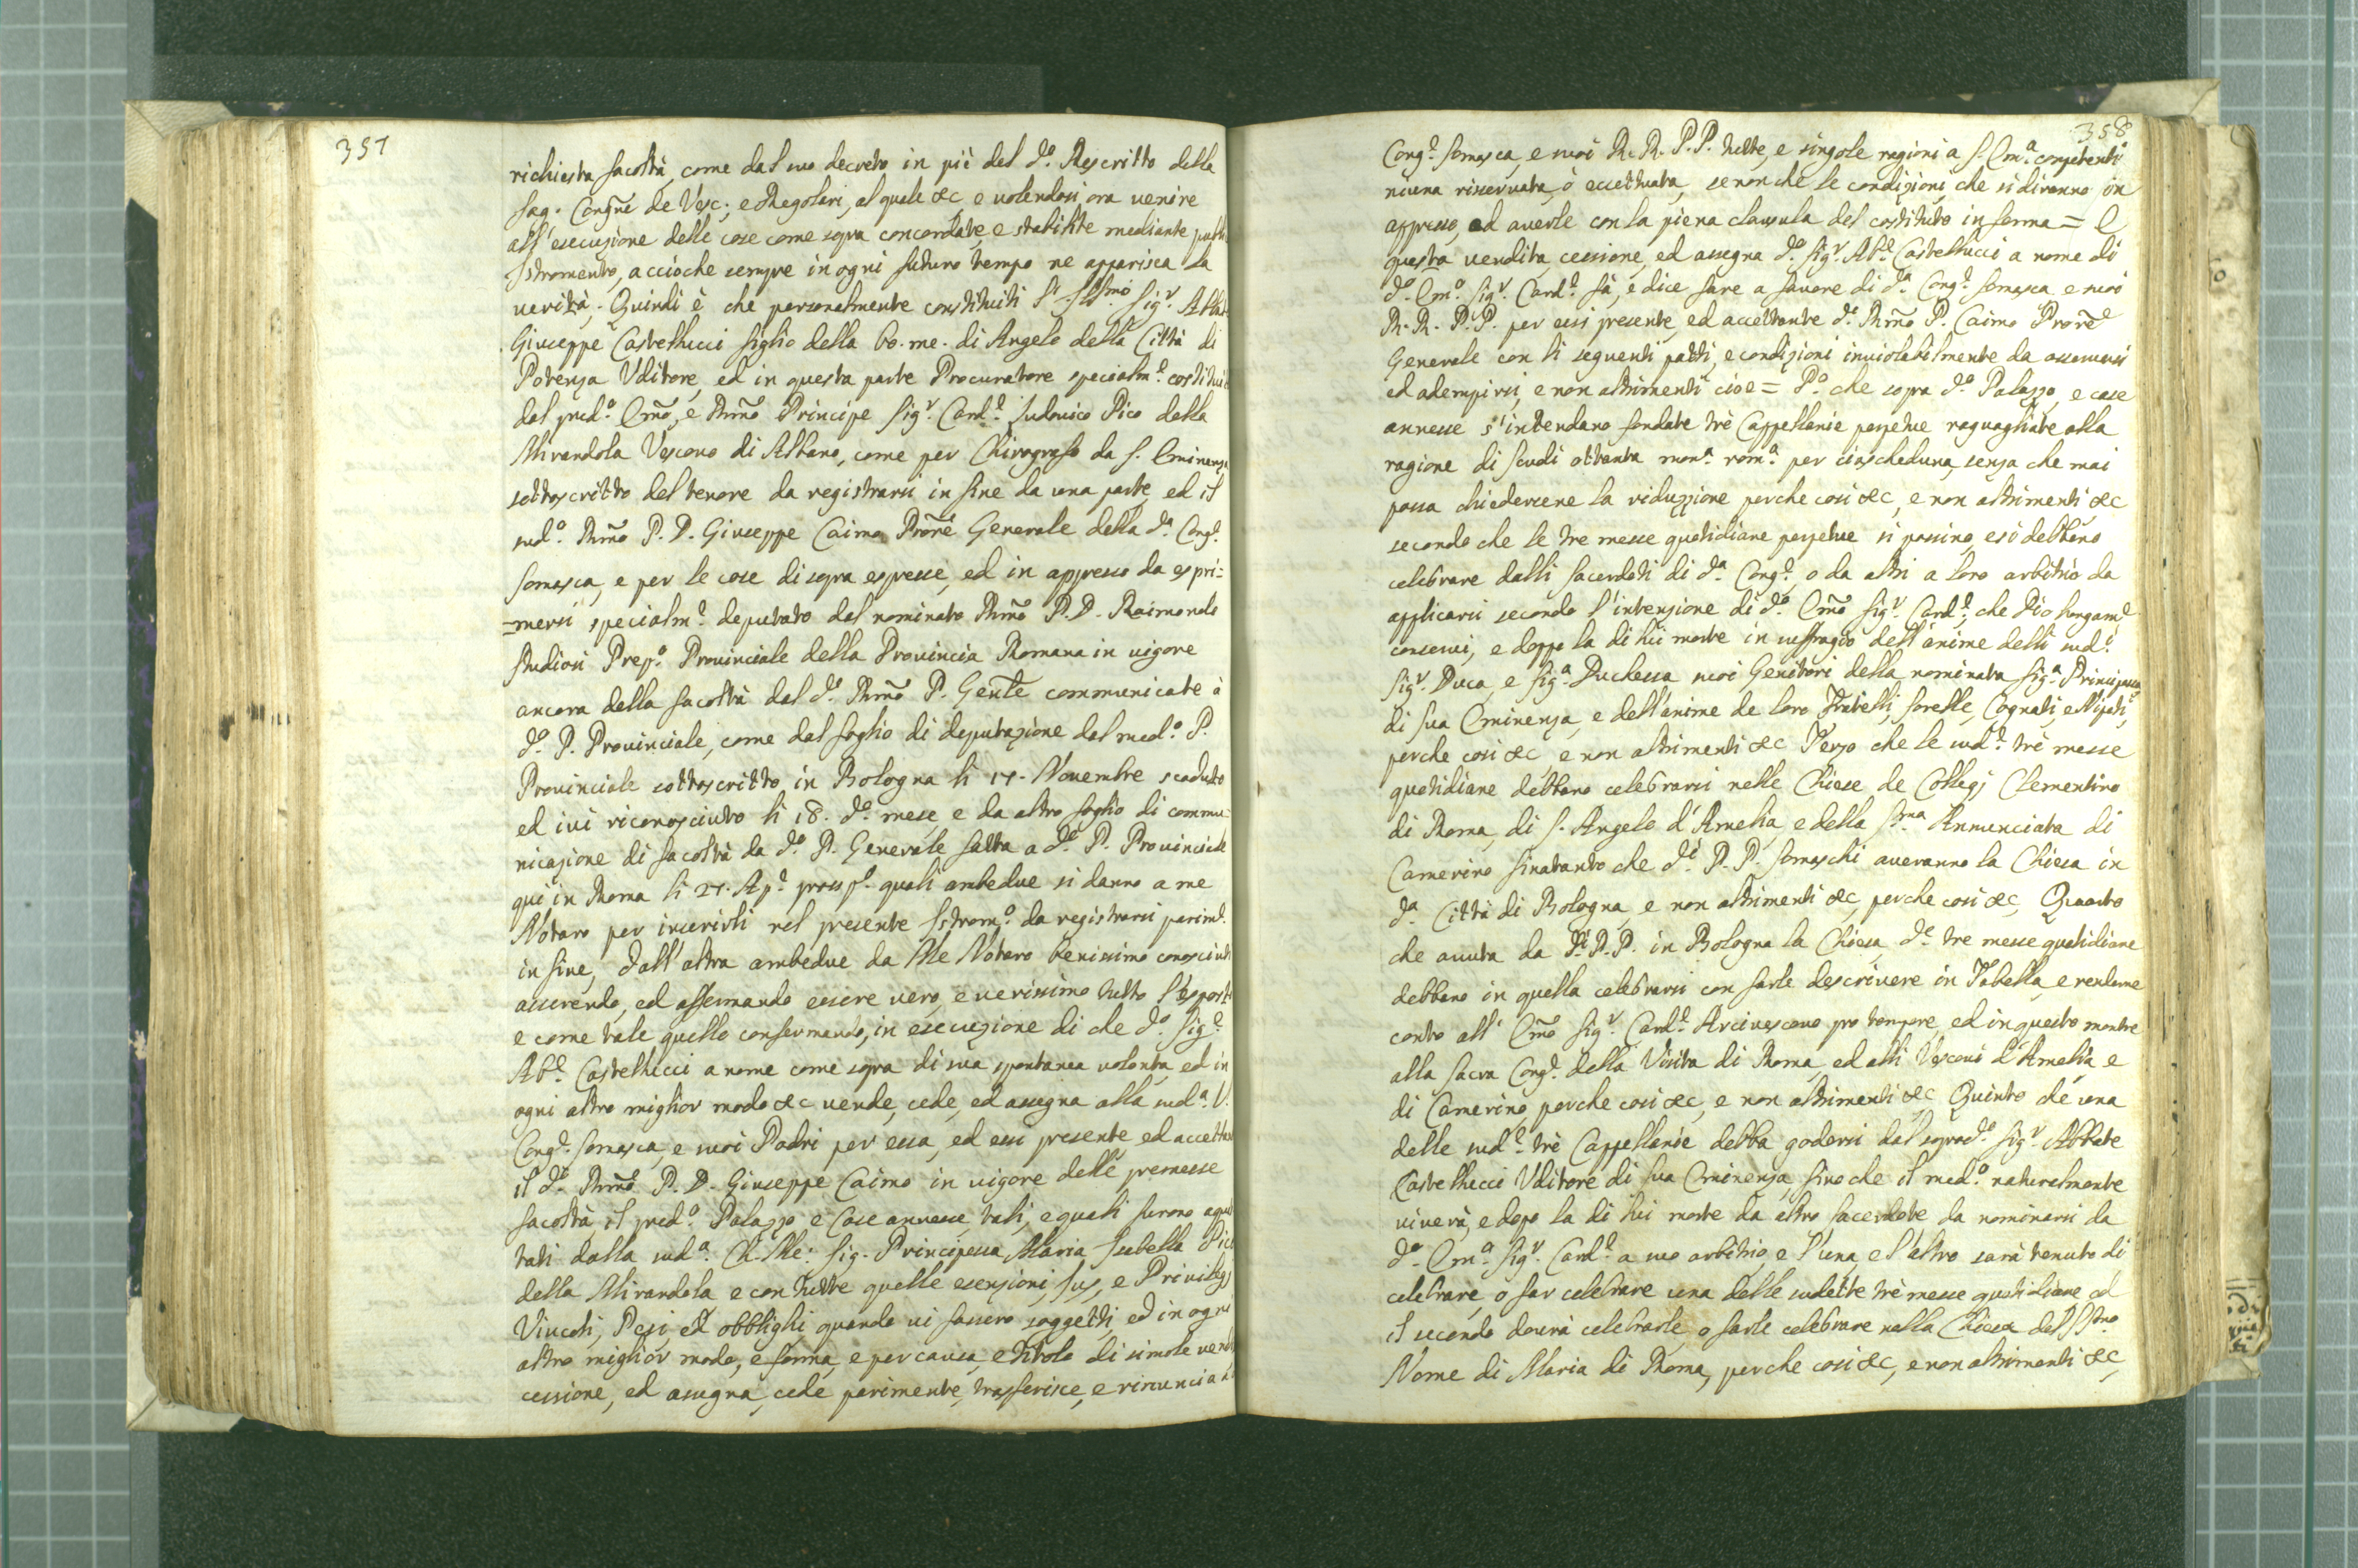 357
richiesta facoltà, come dal suo decreto in piè del d.º Rescritto della
Sag. Congñe de Vesc., e Regolari, al quale &c e volendosi ora venire
all'esecuzione delle cose come sopra concordate, e stabilite mediante publ
Istromento, accioche sempre in ogni futuro tempo ne apparisca la
verità. Quindi è che personalmente constituiti l' Ill.mo Sig.r Abbat
Giuseppe Castellucci figlio della bo. me. di Angelo della Città di
Potenza Uditore, ed in questa parte Procuratore specialm.e costitui
dal pred.º Em̃o, e Rm̃o Principe Sig.r Card.l Ludovico Pico della
Mirandola Vescovo di Albano, come per Chirografo da S. Eminenza
sottoscritto del tenore da registrarsi in fine da una parte, ed il
sud.º Rm̃o P. D. Giuseppe Caimo Prorẽ Generale della d.a Cong.e
Somasca, e per le cose di sopra espresse, ed in appresso da espri=
=mersi specialm.e deputato dal nominato Rm̃o P. D. Raimondo
Studiosi Prep.º Provinciale della Provincia Romana in vigore
ancora della facoltà dal d.º Rm̃o P. Genl̃e communicate à
d.º P. Provinciale, come dal foglio di deputazione dal med.º P.
Provinciale sottoscritto in Bologna li 17. Novembre scaduto
ed ivi riconosciuto li 18. d.º mese, e da altro foglio di commu=
nicazione di facoltà da d.º P. Generale fatta a d.º P. Provinciale
quì in Roma li 27. Ap.e pross.º quali ambedue si danno a me
Notaro per inserirli nel presente Istrom.º da registrarsi parim.e
in fine, dall'altra ambedue da Me Notaro benissimo conosciuti
asserendo, ed affermando essere vero, e verissimo tutto l'esposto
e come tale quello confermando, in esecuzione di che d.º Sig.r
Ab.e Castellucci a nome come sopra di sua spontanea volontà, ed in
ogni altro miglior modo &c vende, cede, ed assegna alla sud.a V.
Cong.e Somasca, e suoi Padri per essa, ed essi presente, ed accettan
il d.º Rm̃o P. D. Giuseppe Caimo in vigore delle premesse
facoltà il pred.º Palazzo, e Case annesse, tali, e quali furono aqui
tati dalla sud.a Ch. Me: Sig. Principessa Maria Isabella Pico
della Mirandola e con tutte quelle esenzioni, Jus, e Privilegj
Vincoli, Pesi, ed obblighi quando vi fossero soggetti, ed in ogni
altro miglior modo, e forma, e per causa, e titolo di simile vendi
cessione, ed assegna, cede parimente, trasferisce, e rinuncia a
358
Cong.e Somasca, e suoi R. R. P. P. tutte, e singole ragioni a S. Em.a competenti
niuna riservata, ò eccettuata, se non che le condizioni, che si diranno in
appresso, ed averle con la piena clausula del costituto in forma = E
questa vendita, cessione, ed assegna d.º Sig.r Ab.e Castellucci a nome di
d.º Em.º Sig.r Card.l fà, e dice fare a favore di d.a Cong.e Somasca, e suoi
R. R. P. P. per essi presente, ed accettante d.º Rm̃o P. Caimo Prorẽ
Generale con li seguenti patti, e condizioni inviolabilmente da osservarsi
ed adempirsi, e non altrimenti cioe = P.º che sopra d.º Palazzo, e case
annesse s'intendano fondate trè Cappellanie perpetue raguagliate alla
ragione di scudi ottanta mon.a rom.a per ciascheduna, senza che mai
possa chiedersene la riduzzione perche cosi &c, e non altrimenti &c
secondo che le tre messe quotidiane perpetue si possino, e si debbano
celebrare dalli Sacerdoti di d.a Cong.e o da altri a loro arbitrio da
applicarsi secondo l'intenzione di d.º Em̃o Sig.r Card.l, che Dio lungam.e
conservi, e doppo la di lui morte in suffragio dell'anime delli sud.i
Sig.r Duca, e Sig.a Duchessa suoi Genitori della nominata Sig.a Principessa
di Sua Eminenza, e dell'anime de loro Fratelli, Sorelle, Cognati, e Nipoti,
perche cosi &c, e non altrimenti &c Terzo che le sud.e trè messe
quotidiane debbano celebrarsi nelle Chiese de Collegj Clementino
di Roma, di S. Angelo d'Amelia, e della SS.ma Annunciata di
Camerino sinatanto che d.i P. P. Somaschi averanno la Chiesa in
d.a Città di Bologna, e non altrimenti &c, perche cosi &c, Quarto
che avuta da d.i P. P. in Bologna la Chiesa d.e tre messe quotidiane
debbano in quella celebrarsi con farle descrivere in Tabella, e renderne
conto all' Em̃o Sig.r Card.l Arcivescovo pro tempore, ed in questo mentre
alla Sacra Cong.e della Visita di Roma, ed alli Vescovi d'Amelia, e
di Camerino perche cosi &c, e non altrimenti &c Quinto che una
delle sud.e trè Cappellanie debba godersi dal soprad.º Sig.r Abbate
Castellucci Uditore di Sua Eminenza, sino che il med.º naturalmente
viverà, e dopo la di lui morte da altro Sacerdote da nominarsi da
d.º Em.º Sig.r Card.l a suo arbitrio, e l'una, e l'altro sarà tenuto di
celebrare, o far celebrare una delle sudette trè messe quotidiane ed
il secondo dovrà celebrarle, o farle celebrare nella Chiesa del SS.mo
Nome di Maria di Roma, perche cosi &c, e non altrimenti &c,